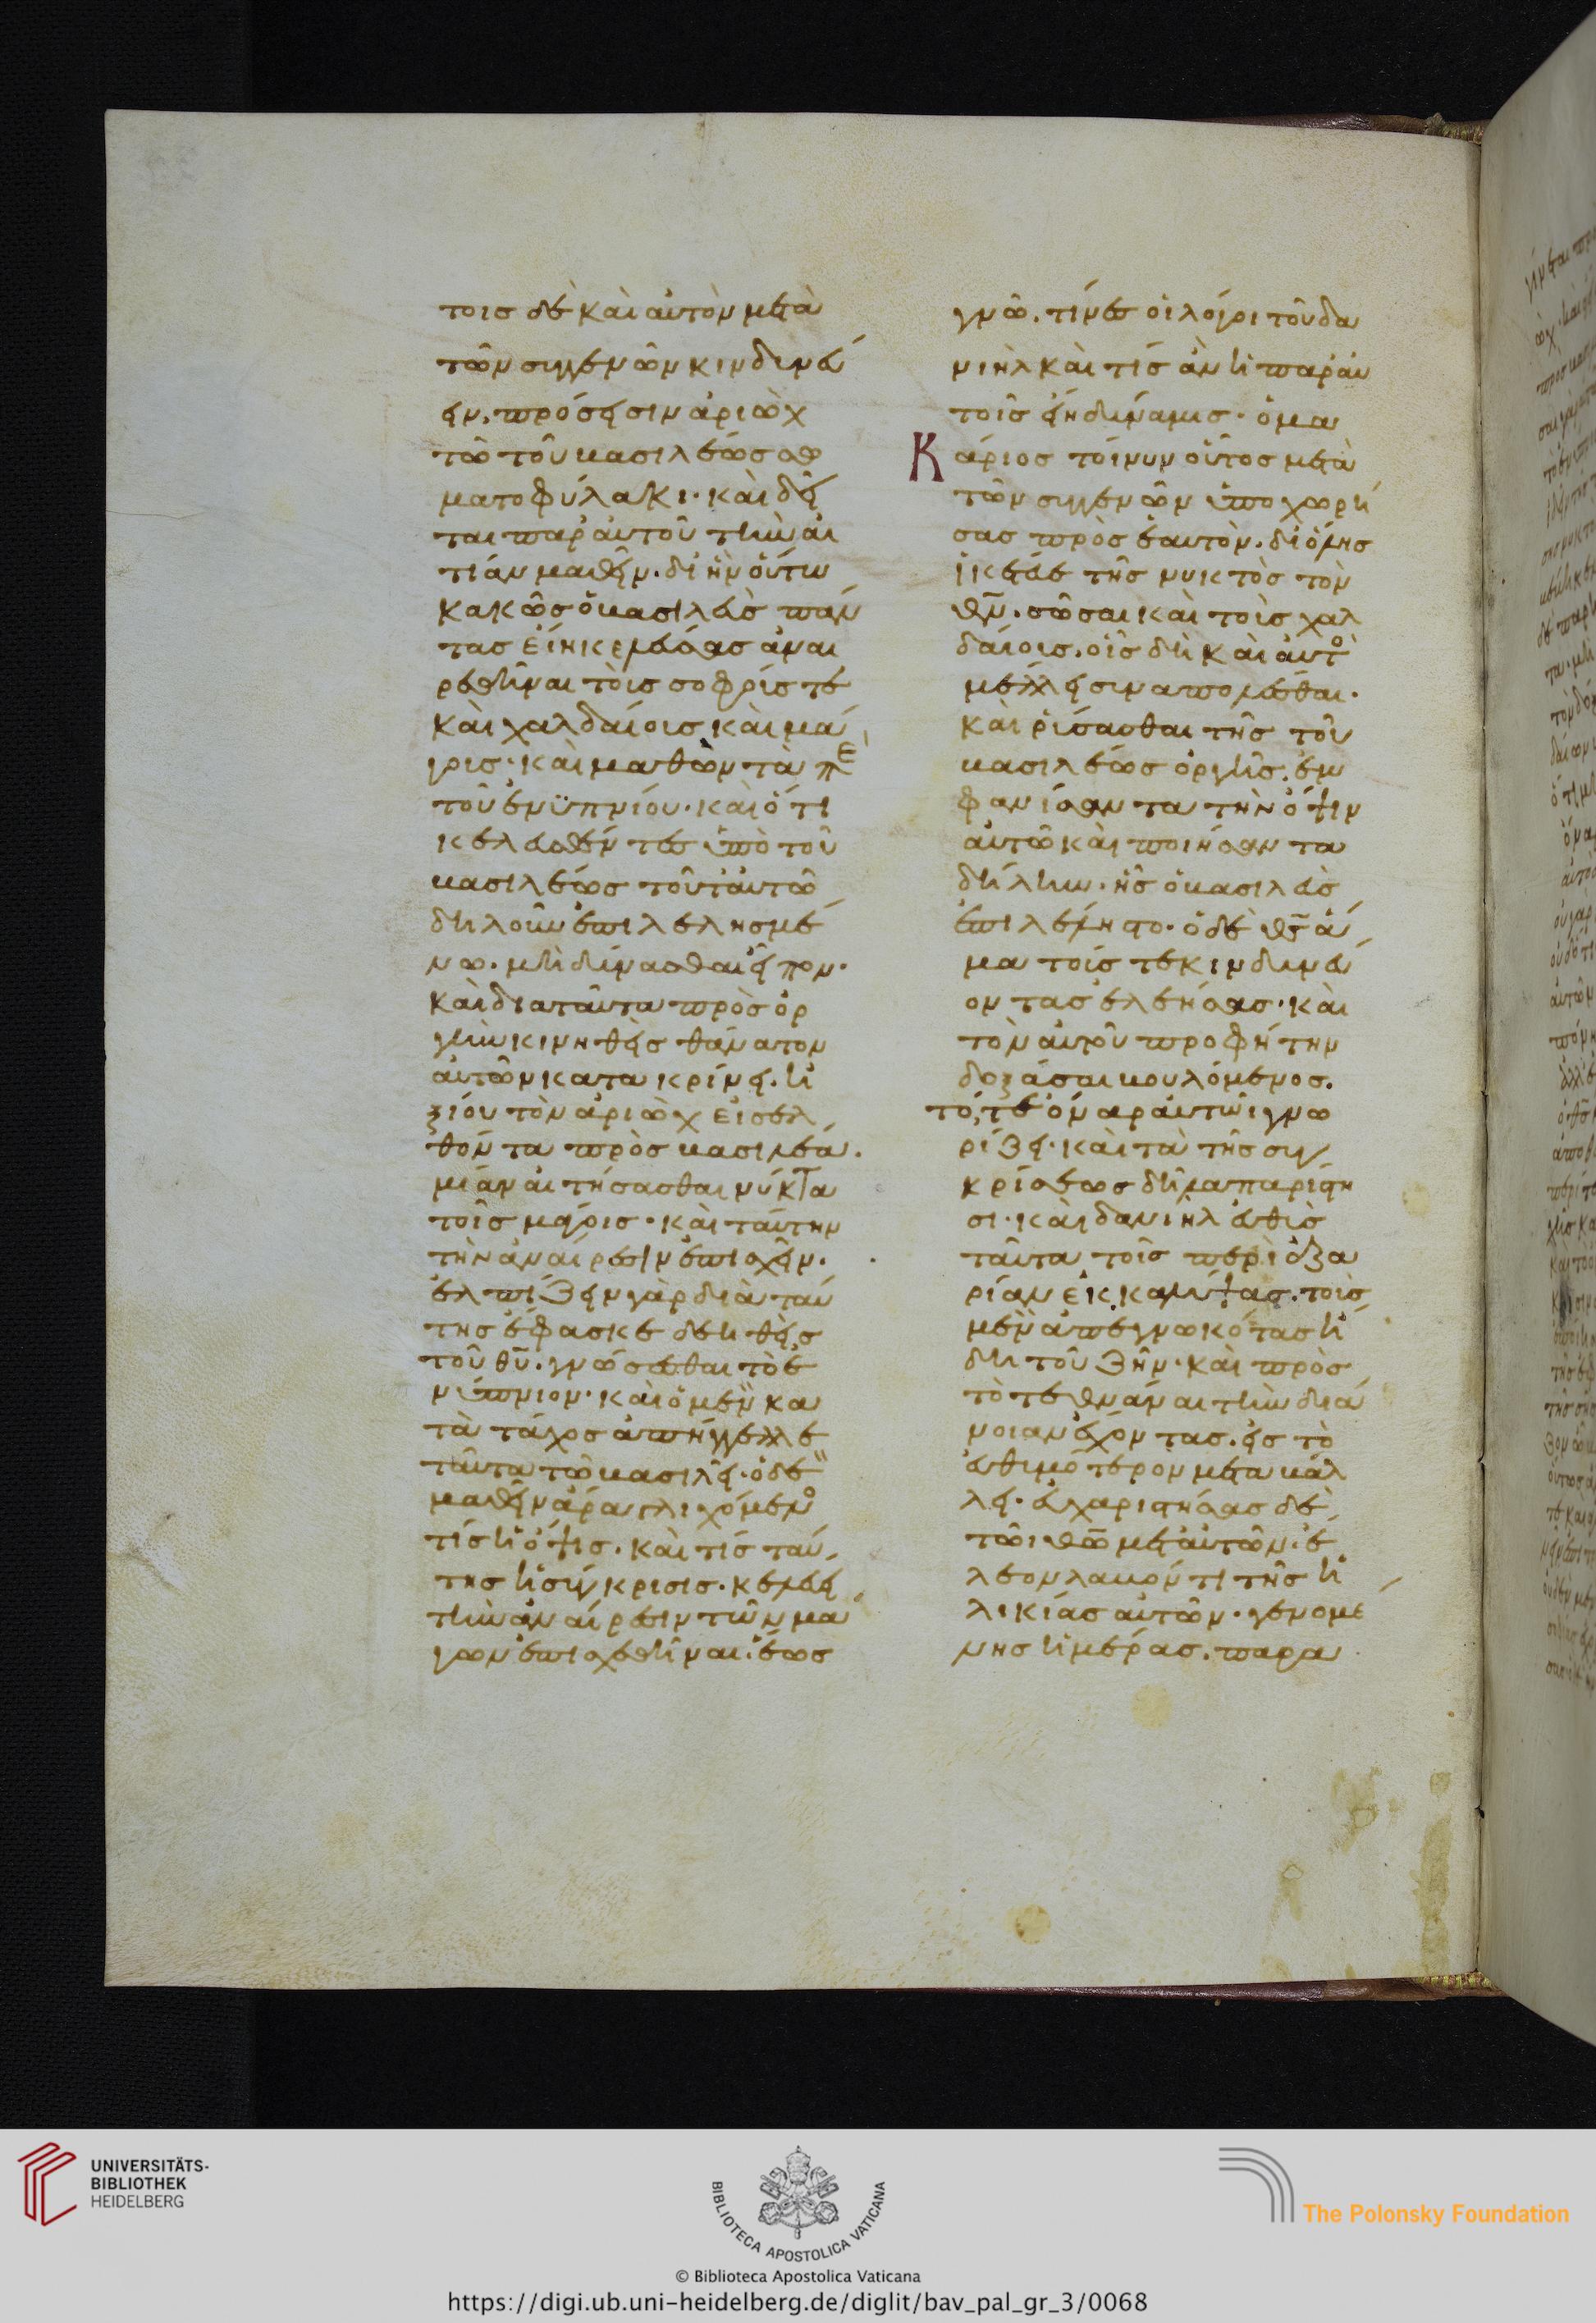 τοις δὲ καὶ αὐτὸν μετὰ
τῶν συγγενῶν κινδυνεύ
ειν, πρόσεισιν ἀριὼχ
τῶ τοῦ βασιλέως σω
ματοφύλακι· καὶ δεῖ
ται παρ αὐτοῦ τὴν αἰ
τίαν μαθεῖν· δι ἣν οὕτω
κακῶς ὁ βασιλεὺς πάν
τας εἴη κελεύσας ἀναι
ρεθῆναι τοῖς σοφοῖς τε
καὶ χαλδαίοις καὶ μά
γοις· καὶ μαθὼν τὰ πε
τοῦ ἐνϋπνίου· καὶ ὅτι
κελευσθέντες ὑπὸ τοῦ
βασιλέως τοῦτ αὐτῶ
δηλοῦν ἐπιλελησμέ
νω· μὴ δύνασθαι εἶπον·
καὶ διαταῦτα πρὸς ὀρ
γὴν κινηθεὶς θάνατον
αὐτῶν κατακρίνει· ἠ
ξίου τὸν ἀριὼχ εἰσελ
θόντα πρὸς βασιλέα·
μίαν αἰτήσασθαι νύκτα
τοῖς μάγοις· καὶ ταύτην
τὴν ἀναίρεσιν ἐπισχεῖν·
ἐλπίζειν γὰρ διὰ ταύ
της ἔφασκε δεηθεὶς
τοῦ θυ· γνώσεσθαι τὸ ἐ
νύπνιον· καὶ ὁ μὲν κα
τὰ τάχος ἀπήγγελλε
ταῦτα τῶ βασιλεῖ· ὁ δὲ
μαθεῖν ἄρα γλιχόμενο
τίς ἡ ὄψις· καὶ τίς ταύ
της ἡ σύγκρισις· κελεύει
τὴν ἀναίρεσιν τῶν μά
γων ἐπισχεθῆναι· ἕως
γνῶ· τίνες οἱ λόγοι τοῦ δα
νιὴλ καὶ τίς ἀν ἡ παρ αυ
τοῖς εἴη δύναμις· ὁ μα
Κάριος τοίνυν οὗτος μετὰ
τῶν συγγενῶν ὑποχωρή
σας πρὸς ἑαυτὸν· δι ὅλης
ἱκέτευε τῆς νυκτὸς τὸν
θν· σῶσαι καὶ τοὺς χαλ
δαίους· οἷς δὴ καὶ αὐτο
μέλλειν συναπολεῖσθαι·
καὶ ῥύσασθαι τῆς τοῦ
βασιλέως ὀργῆς· ἐμ
φανίσαντα τὴν ὄψιν
αὐτῶ καὶ ποιήσαντα
δήλην· ἧς ὁ βασιλεὺς
ἐπιλέληστο· ὁ δὲ θς ἅ
μα τούς τε κινδυνεύ
οντας ἐλεήσας· καὶ
τὸν αὐτοῦ προφήτην
δοξάσαι βουλόμενος·
τό,τε ὄναρ αὐτῶι γνω
ρίζει· καὶ τὰ τῆς συγ
κρίσεως δῆλα παρίστη
σι· καὶ δανιὴλ εὐθὺς
ταῦτα τοῖς περὶ ἀζα
ρίαν ἐκκαλύψας· τοὺς
μὲν ἀπεγνωκότας ἤ
δη τοῦ ζῆν· καὶ πρὸς
τὸ τεθνάναι τὴν διά
νοιαν ἔχοντας· εἰς τὸ
εὐθυμότερον μεταβάλ
λει· εὐχαριστήσας δὲ
τῶι θῶ μετ αὐτῶν· ἔ
λεον λαβόντι τῆς ἡ
λικίας αὐτῶν· γενομέ
νης ἡμέρας· παρα
UNIVERSITÄTS-
BIBLIOTHEK
HEIDELBERG
BIBLIOTECA APOSTOLICA VATICANA
The Polonsky Foundation
© Biblioteca Apostolica Vaticana
https://digi.ub.uni-heidelberg.de/diglit/bav_pal_gr_3/0068